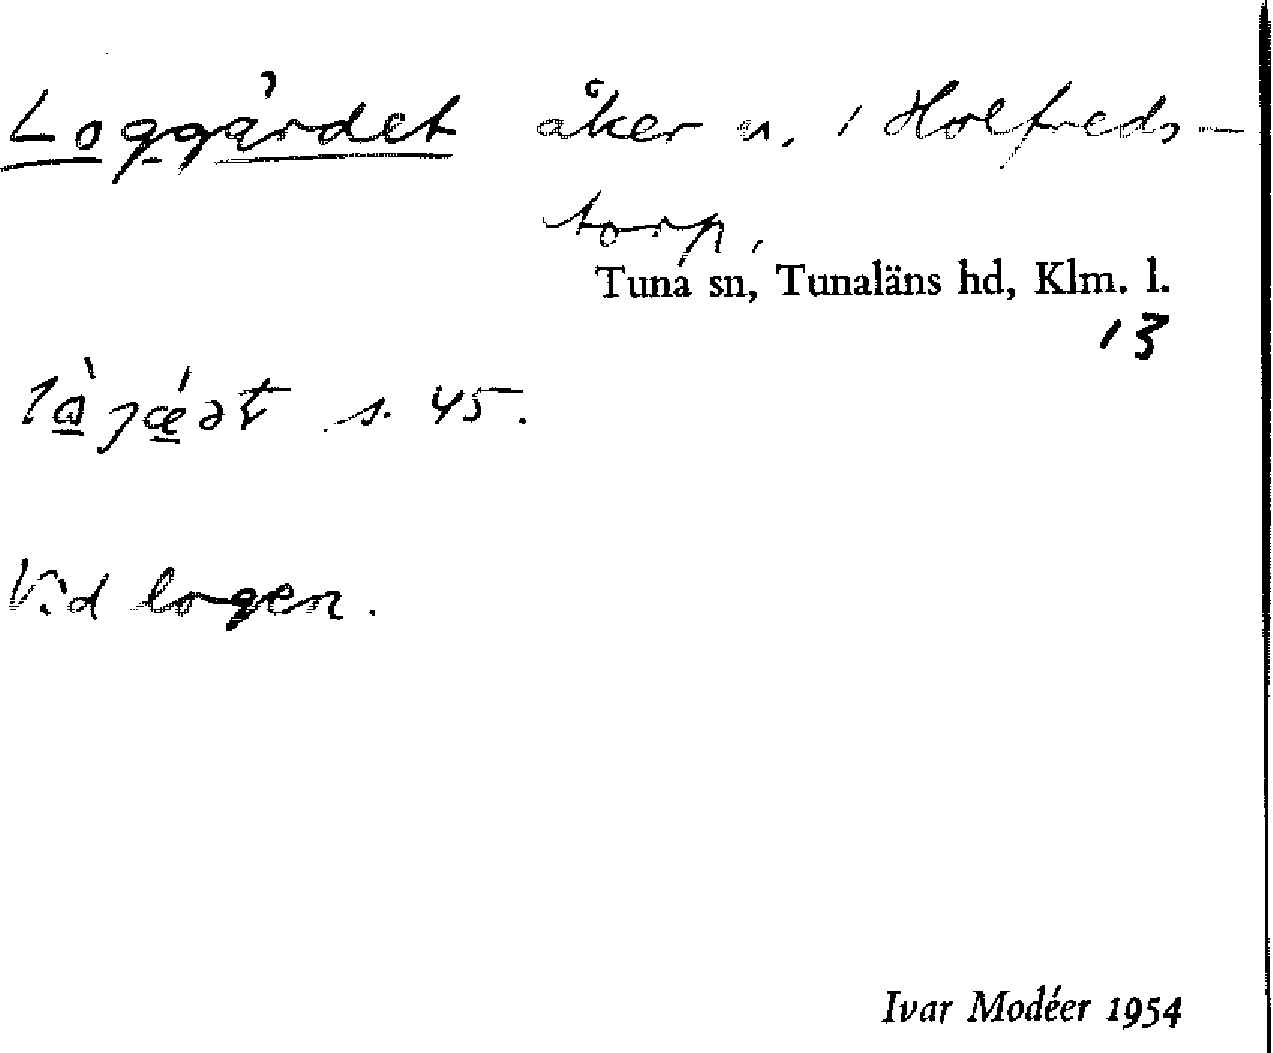 Loggärdet åker n. i Holfreds-
torp,
Tuna sn, Tunaläns hd, Klm. l.
13
s. 45.
Vid logen.
Ivar Modéer 1954